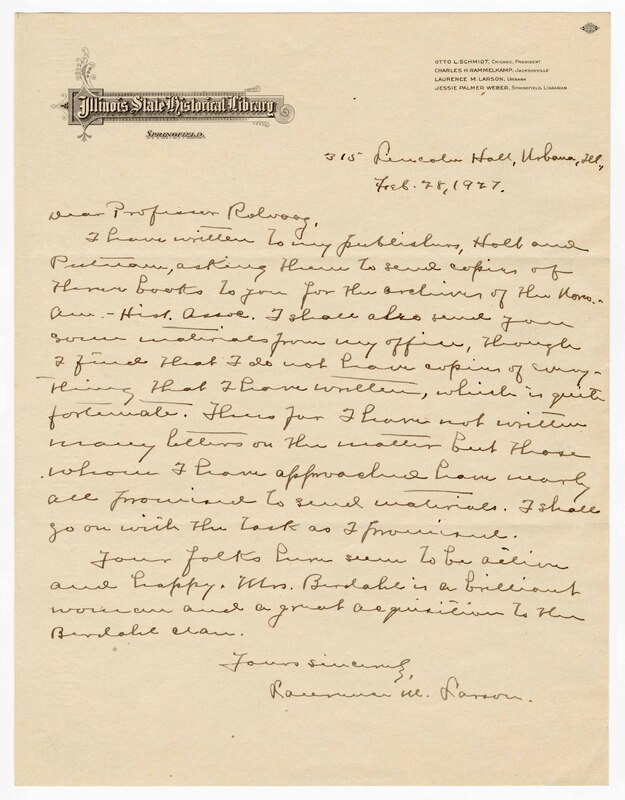 OTTO L. SCHMIDT, CHICAGO, PRESIDENT
CHARLES H. RAMMELKAMP, JACKSONVILLE
LAURENCE M. LARSON, URBANA
JESSIE PALMER WEBER, SPRINGFIELD, LIBRARIAN
Illinois State Historical Library
SPRINGFIELD.
315 Lincoln Hall, Urbana, Ill,
Feb. 28, 1927.
Dear Professor Rolvaag,
I have written to my publishers, Holt and
Putnam, asking them to send copies of
these books to you for the archives of the Norw.-
Am.-Hist. Assoc. I shall also send you
some materials from my office, though
I find that I do not have copies of every-
thing that I have written, which is quite
fortunate. Thus far I have not written
many letters on the matter but those
whom I have approached have nearly
all promised to send materials. I shall
go on with the task as I promised.
Your folks here seem to be active
and happy. Mrs. Berdahl is a brilliant
woman and a great acquisition to the
Berdahl clan.
Yours sincerely,
Laurence M. Larson.